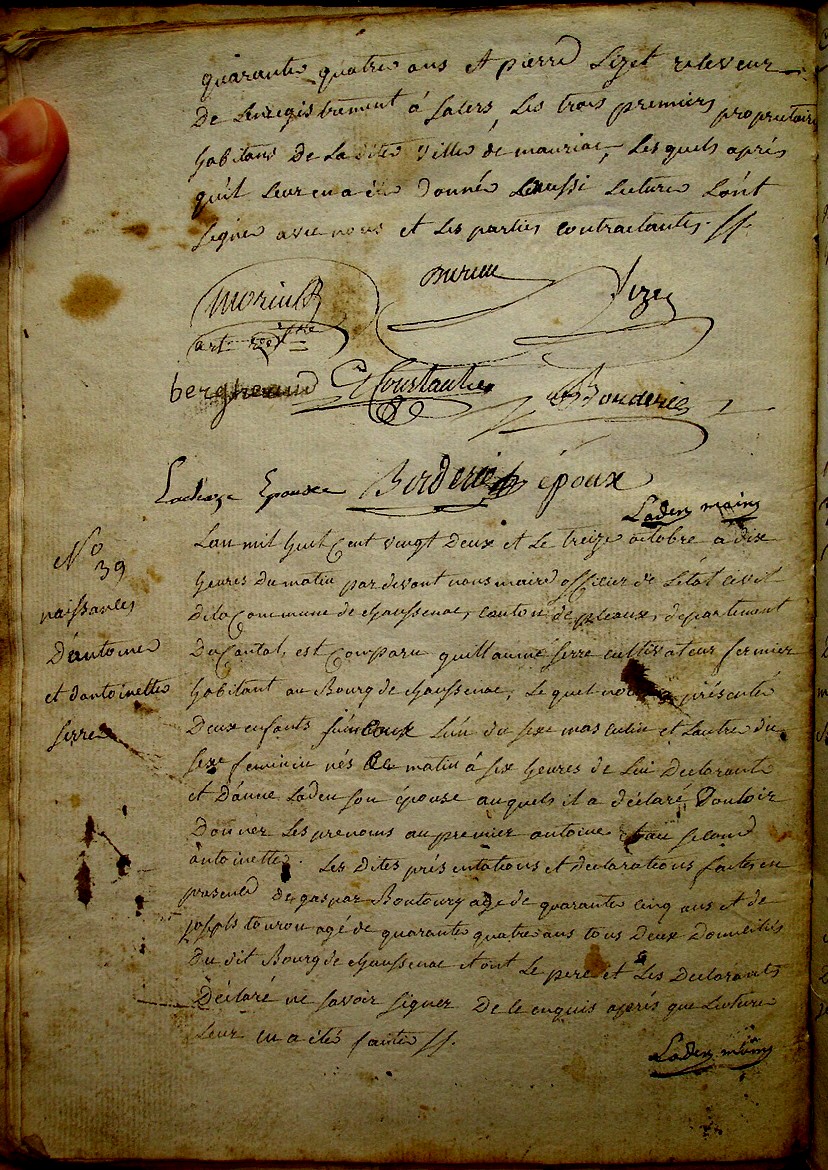 quarante quatre ans et pierre Lizet releveur
De Lenregistrement à Salers, Les trois premiers proprietaires
habitans De La ditte ville de mauriac, Lesquels après
qu'il Leur en a été donnée aussi Lecture Lont
signé avec nous et Les parties contractantes. //.
Lizet
Constantin
Borderie
Ladiege Epouse Borderie époux
Laden maire
No
39
naissances
D'antoine
et d'antoinette
serre
Lan mil huit Cent vingt Deux et Le treize octobre a dix
heures Du matin pardevant nous maire officier de Letat civil
Dela Commune de chaussenac, canton de pleaux, departement
Du Cantal, est Comparu guillaume serre cultivateur fermier
habitant au Bourg de chaussenac, Le quel nous a présenté
Deux enfants jumeaux L'un du sexe masculin et Lautre du
sexe feminin nés Ce matin à six heures de Lui Declarant
et D'anne Laden son épouse auquels il a déclaré Vouloir
Donner Les prenoms au premier antoine et au second
antoinette. Les Dites présentations et declarations faites en
presence de gaspar Boutoury age de quarante cinq ans et de
joseph tourou agé de quarante quatre ans tous Deux Domiciliés
Du dit Bourg de chaussenac et ont Le pere et Les Declarants
Déclaré ne savoir signer De ce enquis après que Lecture
Leur en a été faite //.
Laden maire